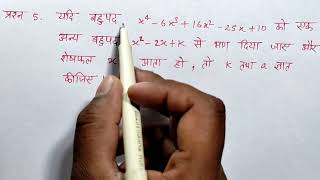 प्रश्न 5. यदि बहुपद x⁴ - 6x³ + 16x² - 25x + 10 को एक
अन्य बहुपद x² - 2x + k से भाग दिया जाए और
शेषफल x आता हो, तो k तथा a ज्ञात
कीजिए